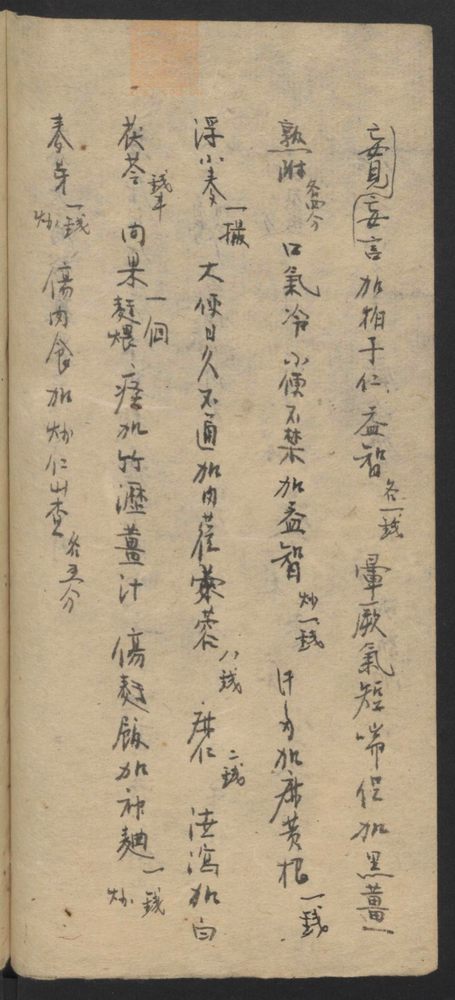 妄見妄言加柏子仁益智各一錢 暈厥氣短喘促加黑薑
熟附各四分 口氣冷小便不禁加益智炒一錢 汗多加麻黃根一錢
浮小麥一撮 大便日久不通加肉蓯蓉八錢 麻仁二錢 洩瀉加白
茯苓錢半 肉果一個麵煨 痰加竹瀝薑汁 傷麵飯加神麯一錢炒
麥芽一錢炒 傷肉食加炒仁山查各五分